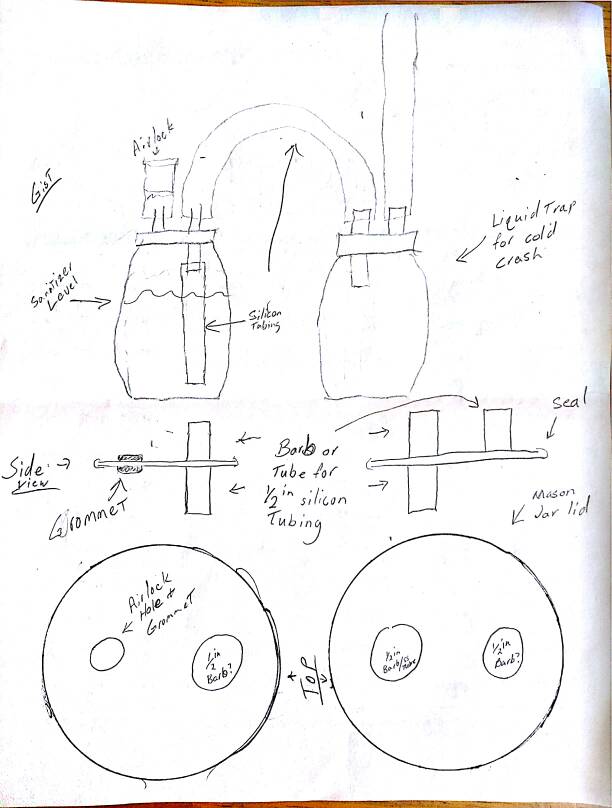 Airlock
GisT
Liquid Trap
for cold
crash
Sanitizer
Level
Silicon
Tubing
Seal
Side
view
Barb or
Tube for
1/2 in silicon
Tubing
Grommet
Mason
Jar lid
Airlock
Hole +
Grommet
1/2 in
Barb?
Top
1/2 in
Barb/
1/2 in
Barb?